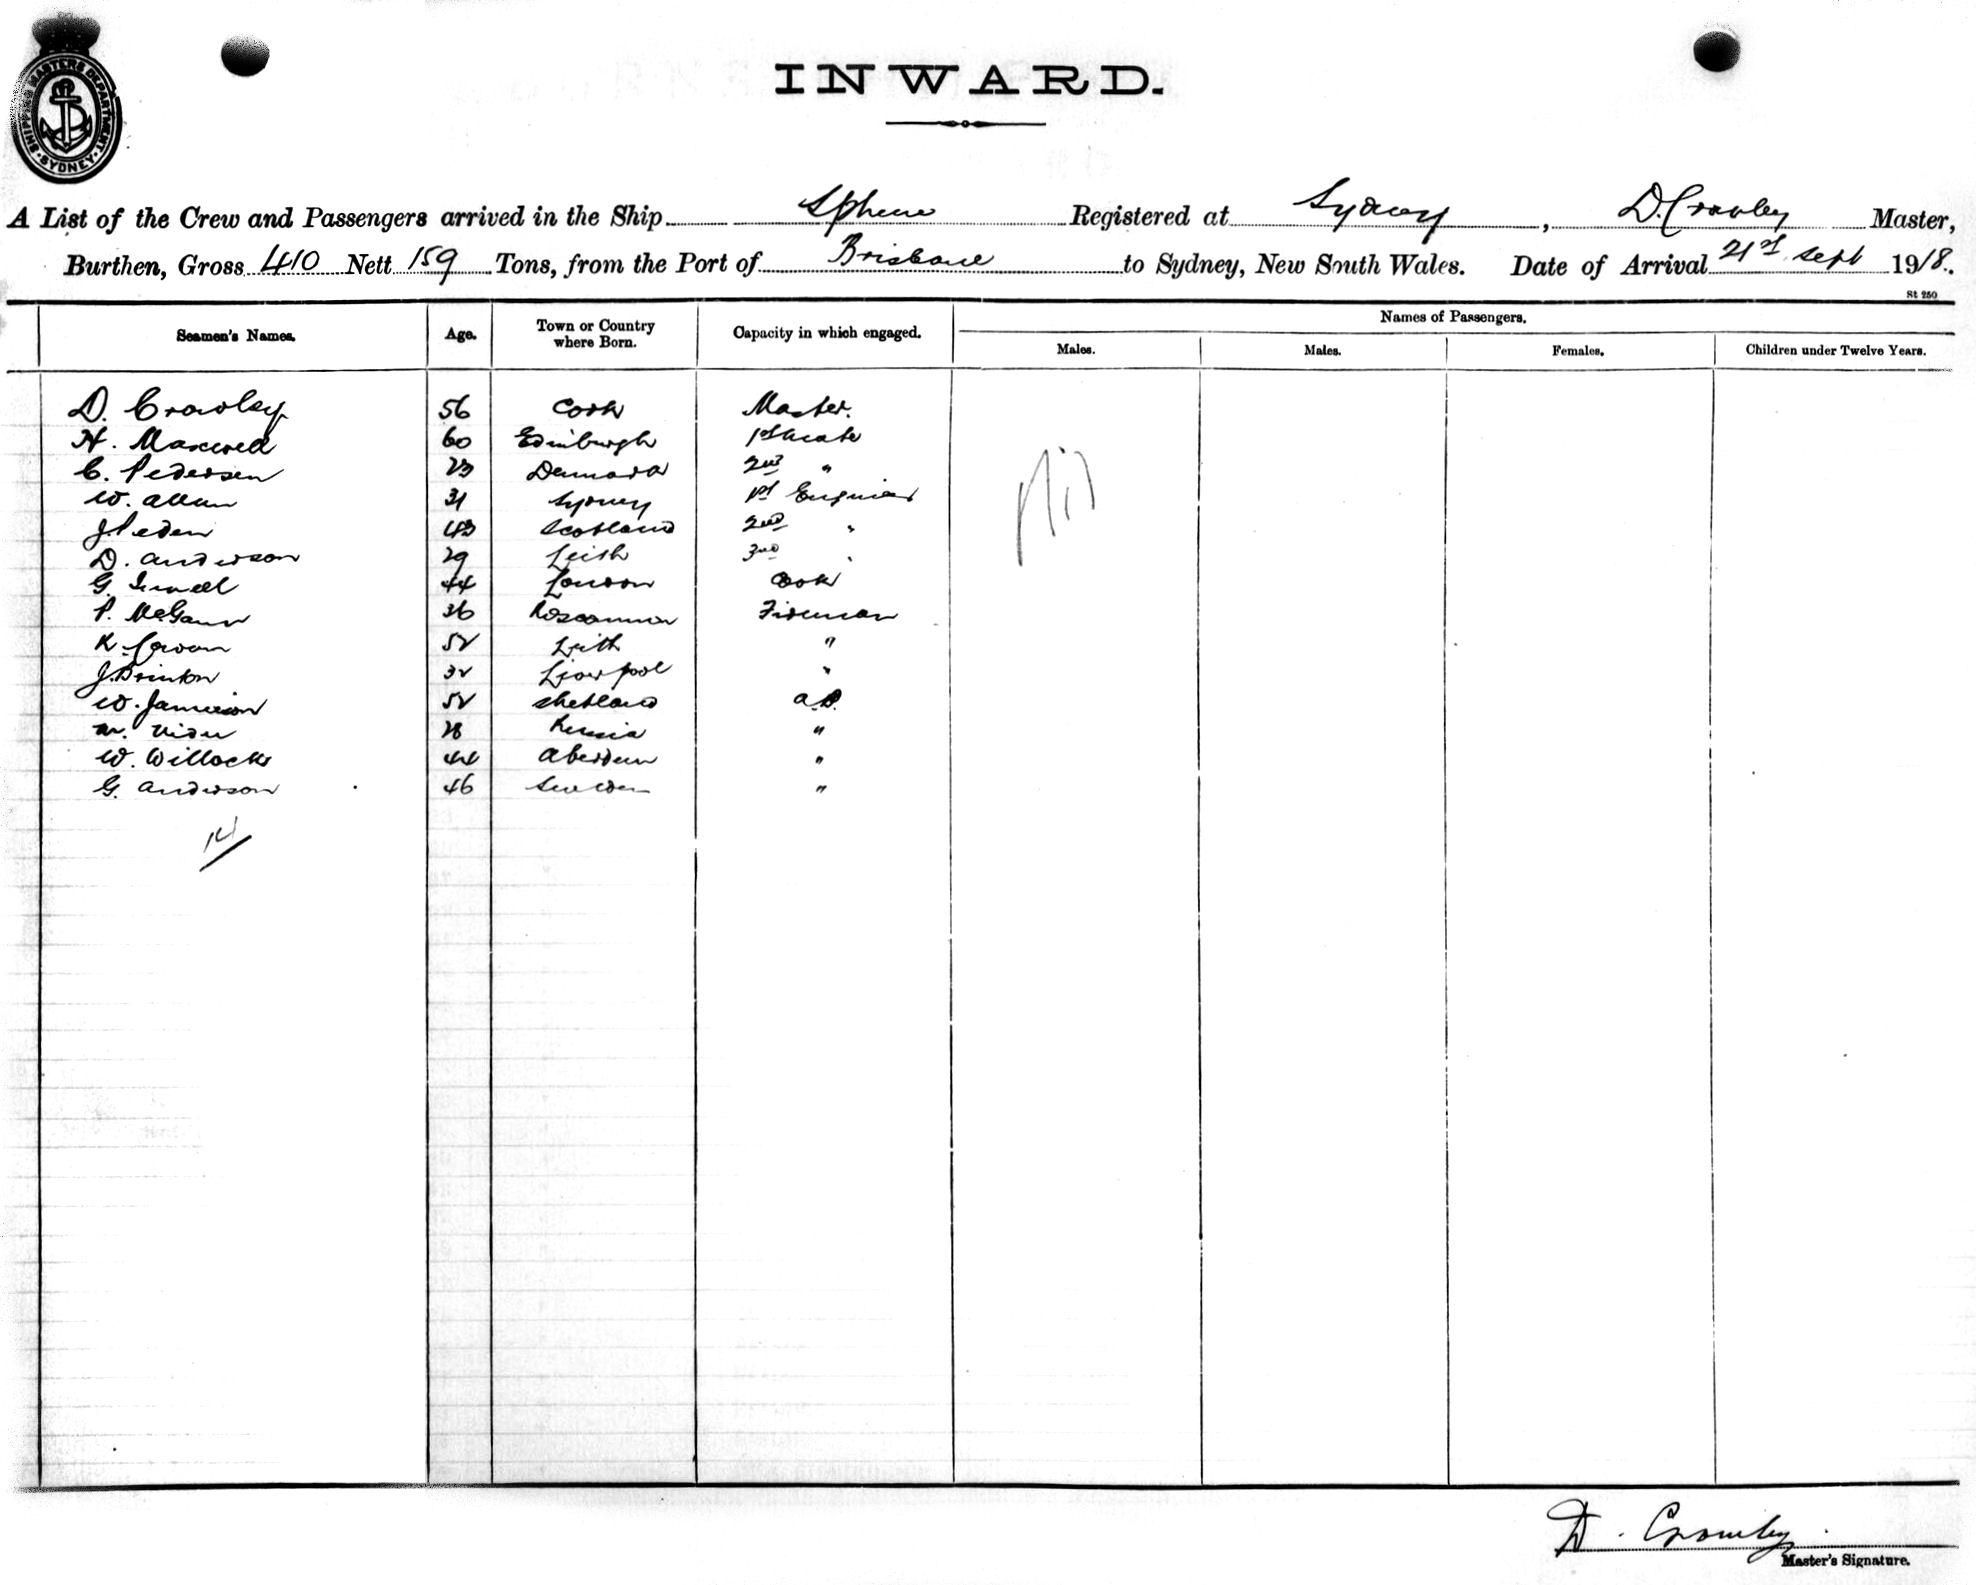 SHIPPING MASTERS DEPARTMENT
SYDNEY
INWARD.
A List of the Crew and Passengers arrived in the Ship Sphene Registered at Sydney, D. Crowley Master,
Burthen, Gross 410 Nett 159 Tons, from the Port of Brisbane to Sydney, New South Wales. Date of Arrival 21st Sept 1918.
St 250
Seamen's Names. Age. Town or Country where Born. Capacity in which engaged. Names of Passengers.
Males. Males. Females. Children under Twelve Years.
D. Crowley 56 Cork Master.
H. Maxwell 60 Edinburgh 1st Mate
C. Pedersen 23 Denmark 2nd "
W. Allan 31 Sydney 1st Engineer
J. Peden 43 Scotland 2nd "
D. Anderson 29 Leith 3rd "
G. 44 London Cook
P. McGann 36 Roscommon Fireman
R. Cowan 52 Leith "
J. Brinton 32 Liverpool "
W. Jamieson 52 Shetland A.B.
28 Russia "
W. Willocks 44 Aberdeen "
G. Anderson 46 Sweden "
Nil
14
D. Crowley
Master's Signature.